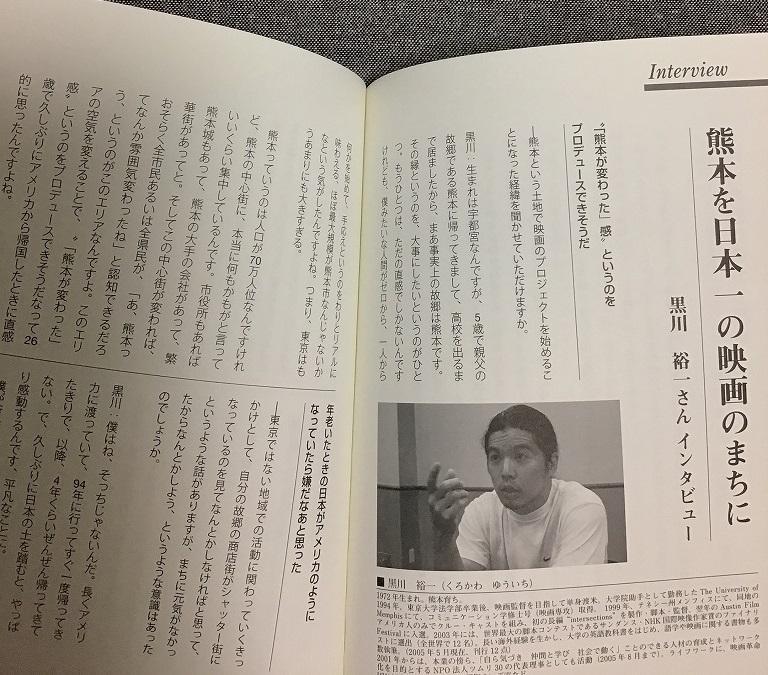 Interview
熊本を日本一の映画のまちに
黒川 裕一さん インタビュー
“「熊本が変わった」感”というのを
プロデュースできそうだ
―熊本という土地で映画のプロジェクトを始めるこ
とになった経緯を聞かせていただけますか。
黒川:生まれは宇都宮なんですが、5歳で親父の
故郷である熊本に帰ってきまして、高校を出るま
で居ましたから、まあ事実上の故郷は熊本です。
その縁というのを、大事にしたいというのがひと
つ。もうひとつは、ただの直感でしかないんです
けれども、僕みたいな人間がゼロから、一人から
■黒川 裕一(くろかわ ゆういち)
1972年生まれ。熊本育ち。
1994年、東京大学法学部卒業後、映画監督を目指して単身渡米。大学院助手として勤務したThe University of
Memphisにて、コミュニケーション学修士号(映画専攻)取得。1999年、テネシー州メンフィスにて、同地の
アメリカ人のみでクルー・キャストを組み、初の長編“intersections”を製作・脚本・監督、翌年のAustin Film
Festivalに入選。2003年には、世界最大の脚本コンテストであるサンダンス・NHK国際映像作家賞のファイナリ
ストに選出(全世界で12名)。長い海外経験を生かし、大学の英語教科書をはじめ、語学や映画に関する書物も多
数執筆。(2005年5月現在、刊行12点)
2001年からは、本業の傍ら、「自ら気づき 仲間と学び 社会で動く」ことのできる人材の育成とネットワーク
化を目的とするNPO法人ツムリ30の代表理事としても活動(2005年8月まで)。ライフワークに、映画革命
何かを始めて、手応えというのをわりとリアルに
味わえる、ほぼ最大規模が熊本市なんじゃないか
なという気がしたんですよね。つまり、東京はも
うあまりにも大きすぎる。
熊本っていうのは人口が70万人位なんですけれ
ど、熊本の中心街に、本当に何もかもがと言って
いいくらい集中しているんです。市役所もあれば
熊本城もあって、熊本の大手の会社があって、繁
華街があってと。そしてこの中心街が変われば、
おそらく全市民あるいは全県民が、「あ、熊本っ
てなんか雰囲気変わったね」と認知できるだろ
う、というのがこのエリアなんですよ。このエリ
アの空気を変えることで、“「熊本が変わった」
感”というのをプロデュースできそうだなって26
歳で久しぶりにアメリカから帰国したときに直感
的に思ったんですよね。
年老いたときの日本がアメリカのように
なっていたら嫌だなあと思った
―東京ではない地域での活動に関わっていくきっ
かけとして、自分の故郷の商店街がシャッター街に
なっているのを見てなんとかしなければと思って、
というような話がありますが、まちに元気がなかっ
たからなんとかしよう、というような意識はあった
のでしょうか。
黒川:僕はね、そっちじゃないんだ。長くアメリ
カに渡っていて、94年に行ってすぐ一度帰ってき
たきりで、以降、4年くらいぜんぜん帰ってきて
ない。で、久しぶりに日本の土を踏むと、やっぱ
り感動するんです、平凡なことに。